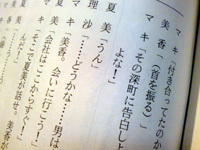 マキ「付き合ってたのか
美香「(首を振る)」
マキ「その深町に告白し
よな!」
夏美「うん」
理沙「……どうかな……男は
マキ「美香。会いに行こう!」
「会社はここからすぐ!」
「そこで夏美が話せ。
美香が